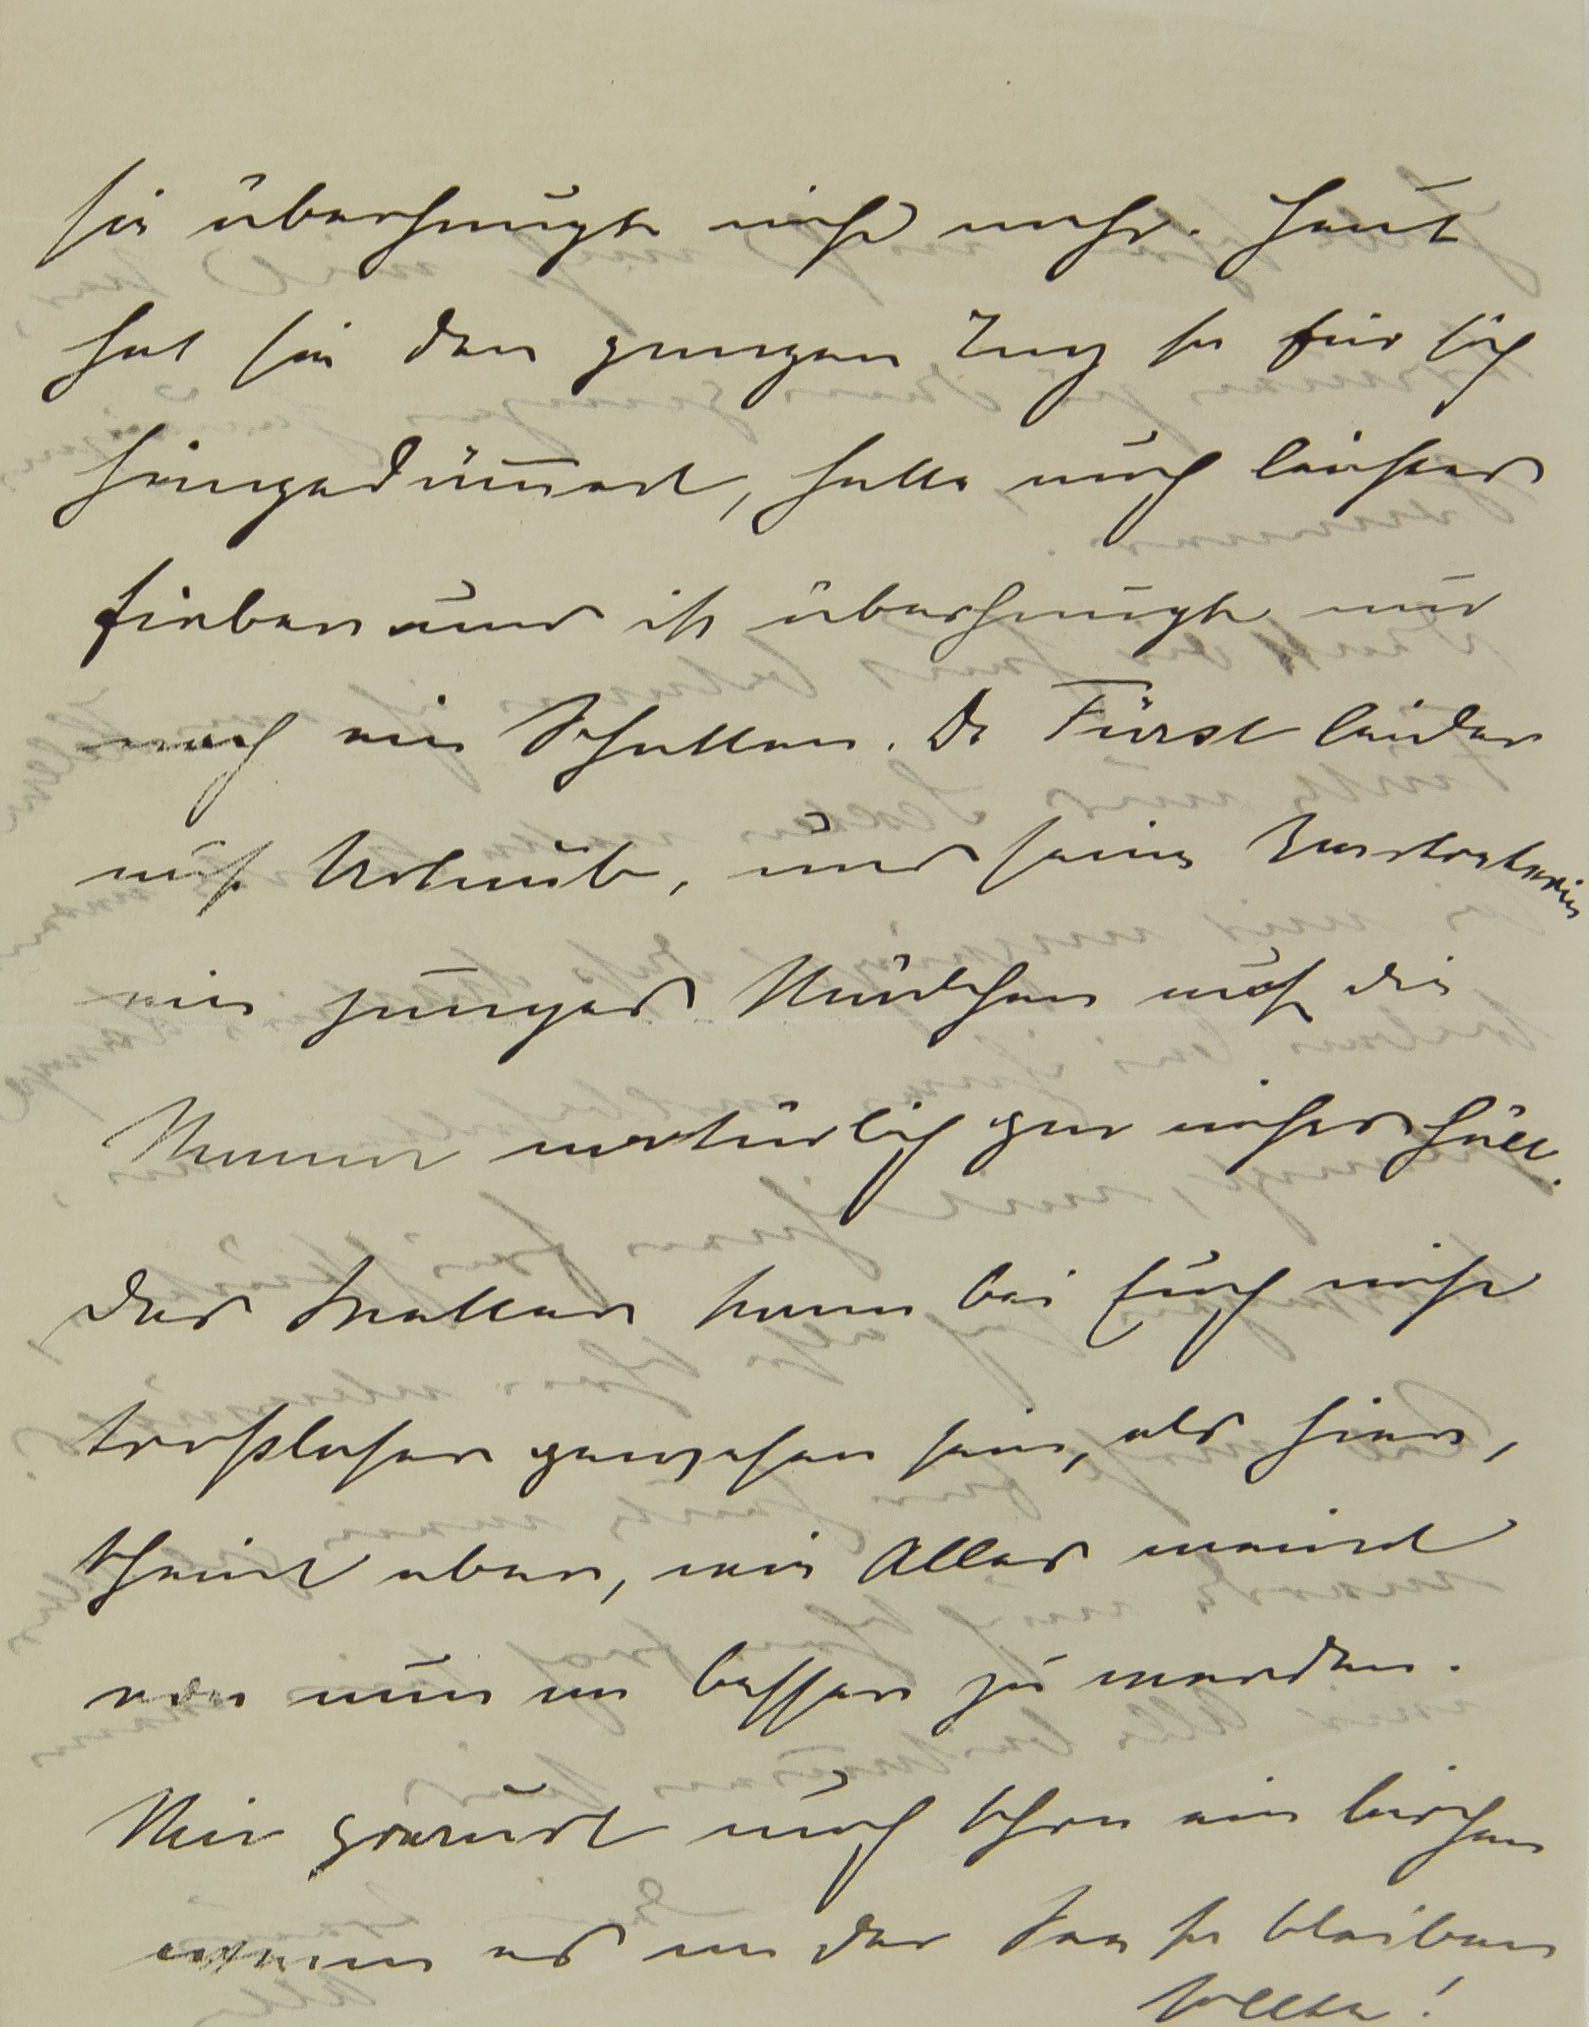 sie überhaupt nicht mehr. Heut
hat sie den ganzen Tag so für sich
hingedämmert, hatte auch leichtes
Fieber und ist überhaupt nur
noch ein Schatten. Dr Fürst leider
auf Urlaub, und seine Vertreterin
ein junges Mädchen auf die
Mama natürlich gar nichts hält.
Das Wetter kann bei Euch nicht
trostloser gewesen sein, als hier,
scheint aber, wie Alles meint
von nun an besser zu werden.
Mir graust auch schon ein bischen
wenn es an der See so bleiben
sollte!